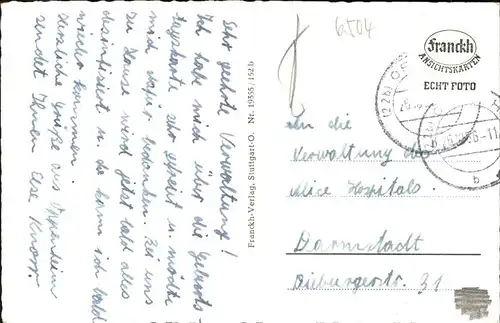 Sehr geehrte Verwaltung!
Ich habe mich über die Geburts-
tagskarte sehr gefreut u. möchte
mich dafür bedanken. Bei uns
zu Hause wird jetzt bald alles
desinfiziert u. da kann ich bald
wieder kommen.
Herzliche Grüße aus
sendet Ihnen Else
Franckh-Verlag, Stuttgart-O. Nr. 19355/152b
6504
Franckh
ANSICHTSKARTEN
ECHT FOTO
An die
Verwaltung des
Alice Hospitals
Darmstadt
Dieburgerstr. 31